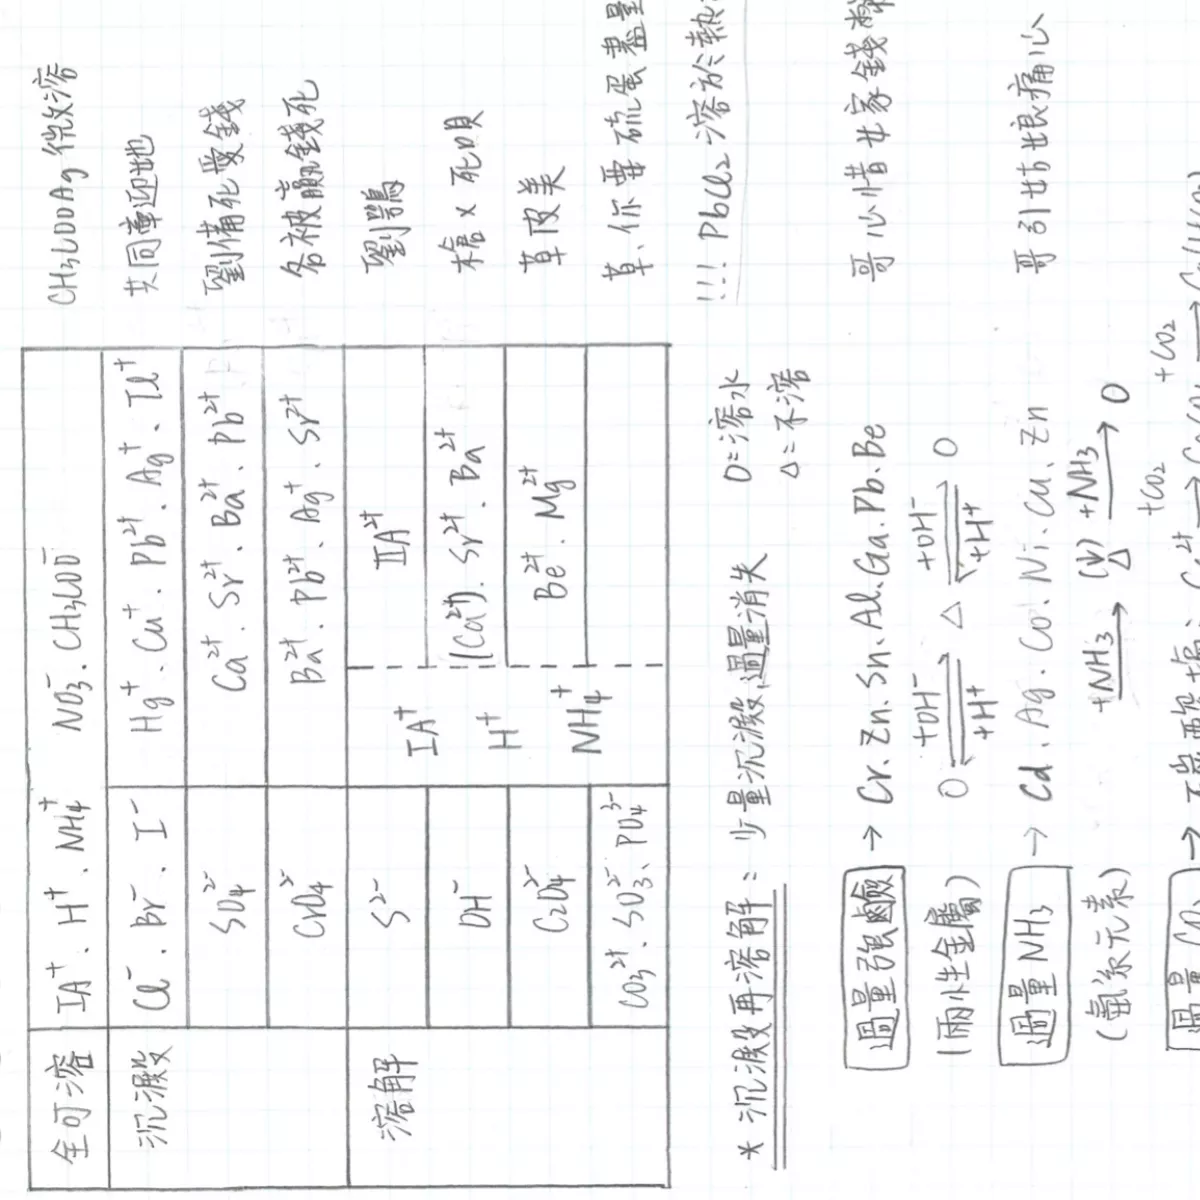 全可溶 IA⁺、H⁺、NH₄⁺ NO₃⁻、CH₃COO⁻ CH₃COOAg微溶
沉澱 Cl⁻、Br⁻、I⁻ Hg⁺、Cu⁺、Pb²⁺、Ag⁺、Tl⁺ 共同牽迎地
SO₄²⁻ Ca²⁺、Sr²⁺、Ba²⁺、Pb²⁺ 劉備死愛錢
CrO₄²⁻ Ba²⁺、Pb²⁺、Ag⁺、Sr²⁺ 各被贏錢死
溶解 S²⁻ IIA²⁺ 劉鶚
IA⁺
OH⁻ (Ca²⁺)、Sr²⁺、Ba²⁺ x死唄
H⁺
C₂O₄²⁻ Be²⁺、Mg²⁺ 草皮美
NH₄⁺
CO₃²⁺、SO₃²⁻、PO₄³⁻ 草、你要硫蛋盡量
!!! PbCl₂溶於熱
*沉澱再溶解: 少量沉澱,過量消失 O=溶水
△=不溶
過量強鹼 → Cr、Zn、Sn、Al、Ga、Pb、Be 哥心惜女家錢
(兩性金屬) O +OH⁻ ⇌ +H⁺ △ +OH⁻ ⇌ +H⁺ O
過量NH₃ → Cd、Ag、Co、Ni、Cu、Zn 哥引姑娘痛心
(氨系元素) +NH₃ → (y) △ +NH₃ → O
+CO₂ +CO₂
過量CO₂ →